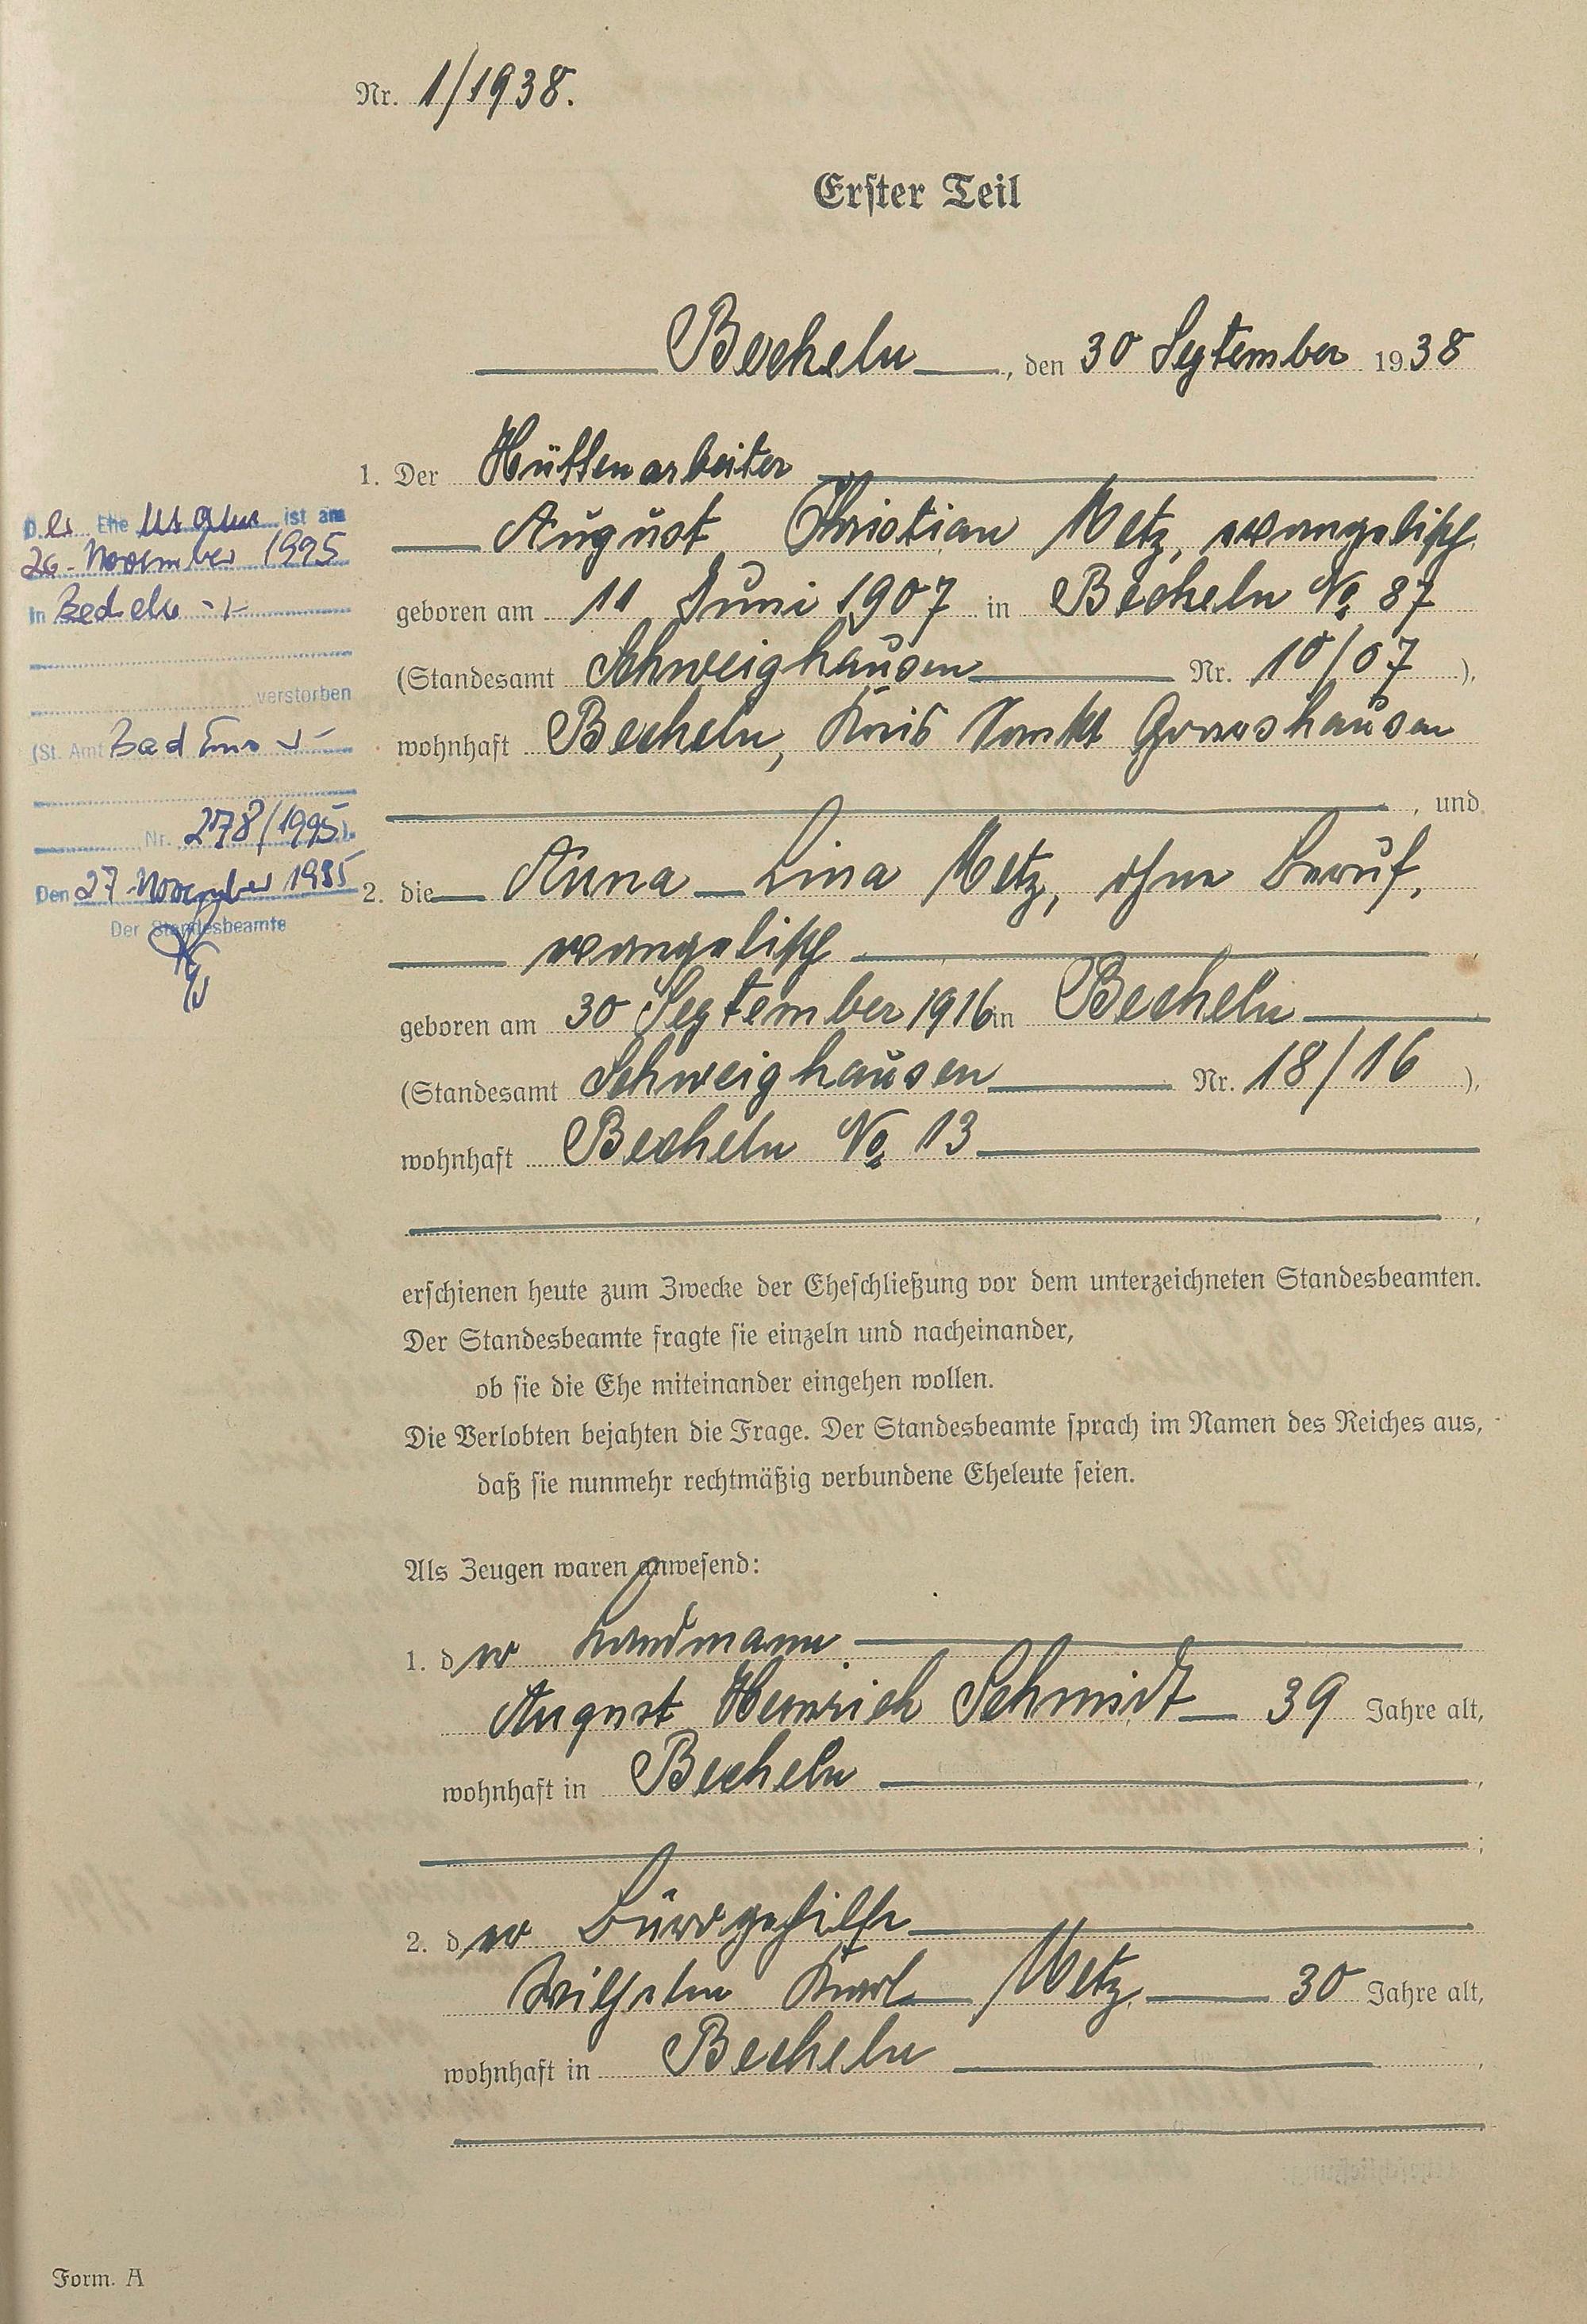 Nr. 1/1938.
Erster Teil
Becheln, den 30 September 1938
1. Der Hüttenarbeiter
August Christian Metz, evangelisch
geboren am 11 Juni 1907 in Becheln No 87
(Standesamt Schweighausen Nr. 10/07),
wohnhaft Becheln, Kreis Sankt Goarshausen
, und
2. die Anna Lina Metz, ohne Beruf,
evangelisch
geboren am 30 September 1916 in Becheln
(Standesamt Schweighausen Nr. 18/16),
wohnhaft Becheln No 13
erschienen heute zum Zwecke der Eheschließung vor dem unterzeichneten Standesbeamten.
Der Standesbeamte fragte sie einzeln und nacheinander,
ob sie die Ehe miteinander eingehen wollen.
Die Verlobten bejahten die Frage. Der Standesbeamte sprach im Namen des Reiches aus,
daß sie nunmehr rechtmäßig verbundene Eheleute seien.
Als Zeugen waren anwesend:
1. der Landmann
August Heinrich Schmidt 39 Jahre alt,
wohnhaft in Becheln
;
2. der Bürogehilfe
Wilhelm Karl Metz 30 Jahre alt,
wohnhaft in Becheln
D.er Ehemann ist am
26. November 1995
in Becheln
verstorben
(St. Amt Bad Ems
Nr. 278/1995).
Den 27. November 1995
Der Standesbeamte
Form. A